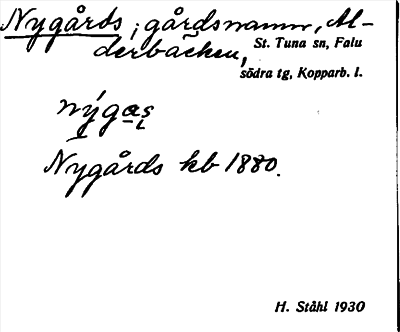 Nygårds, gårdsnamn, Al-
derbäcken, St. Tuna sn, Falu
södra tg, Kopparb. l.
nýgas
Nygårds kb 1880.
H. Ståhl 1930